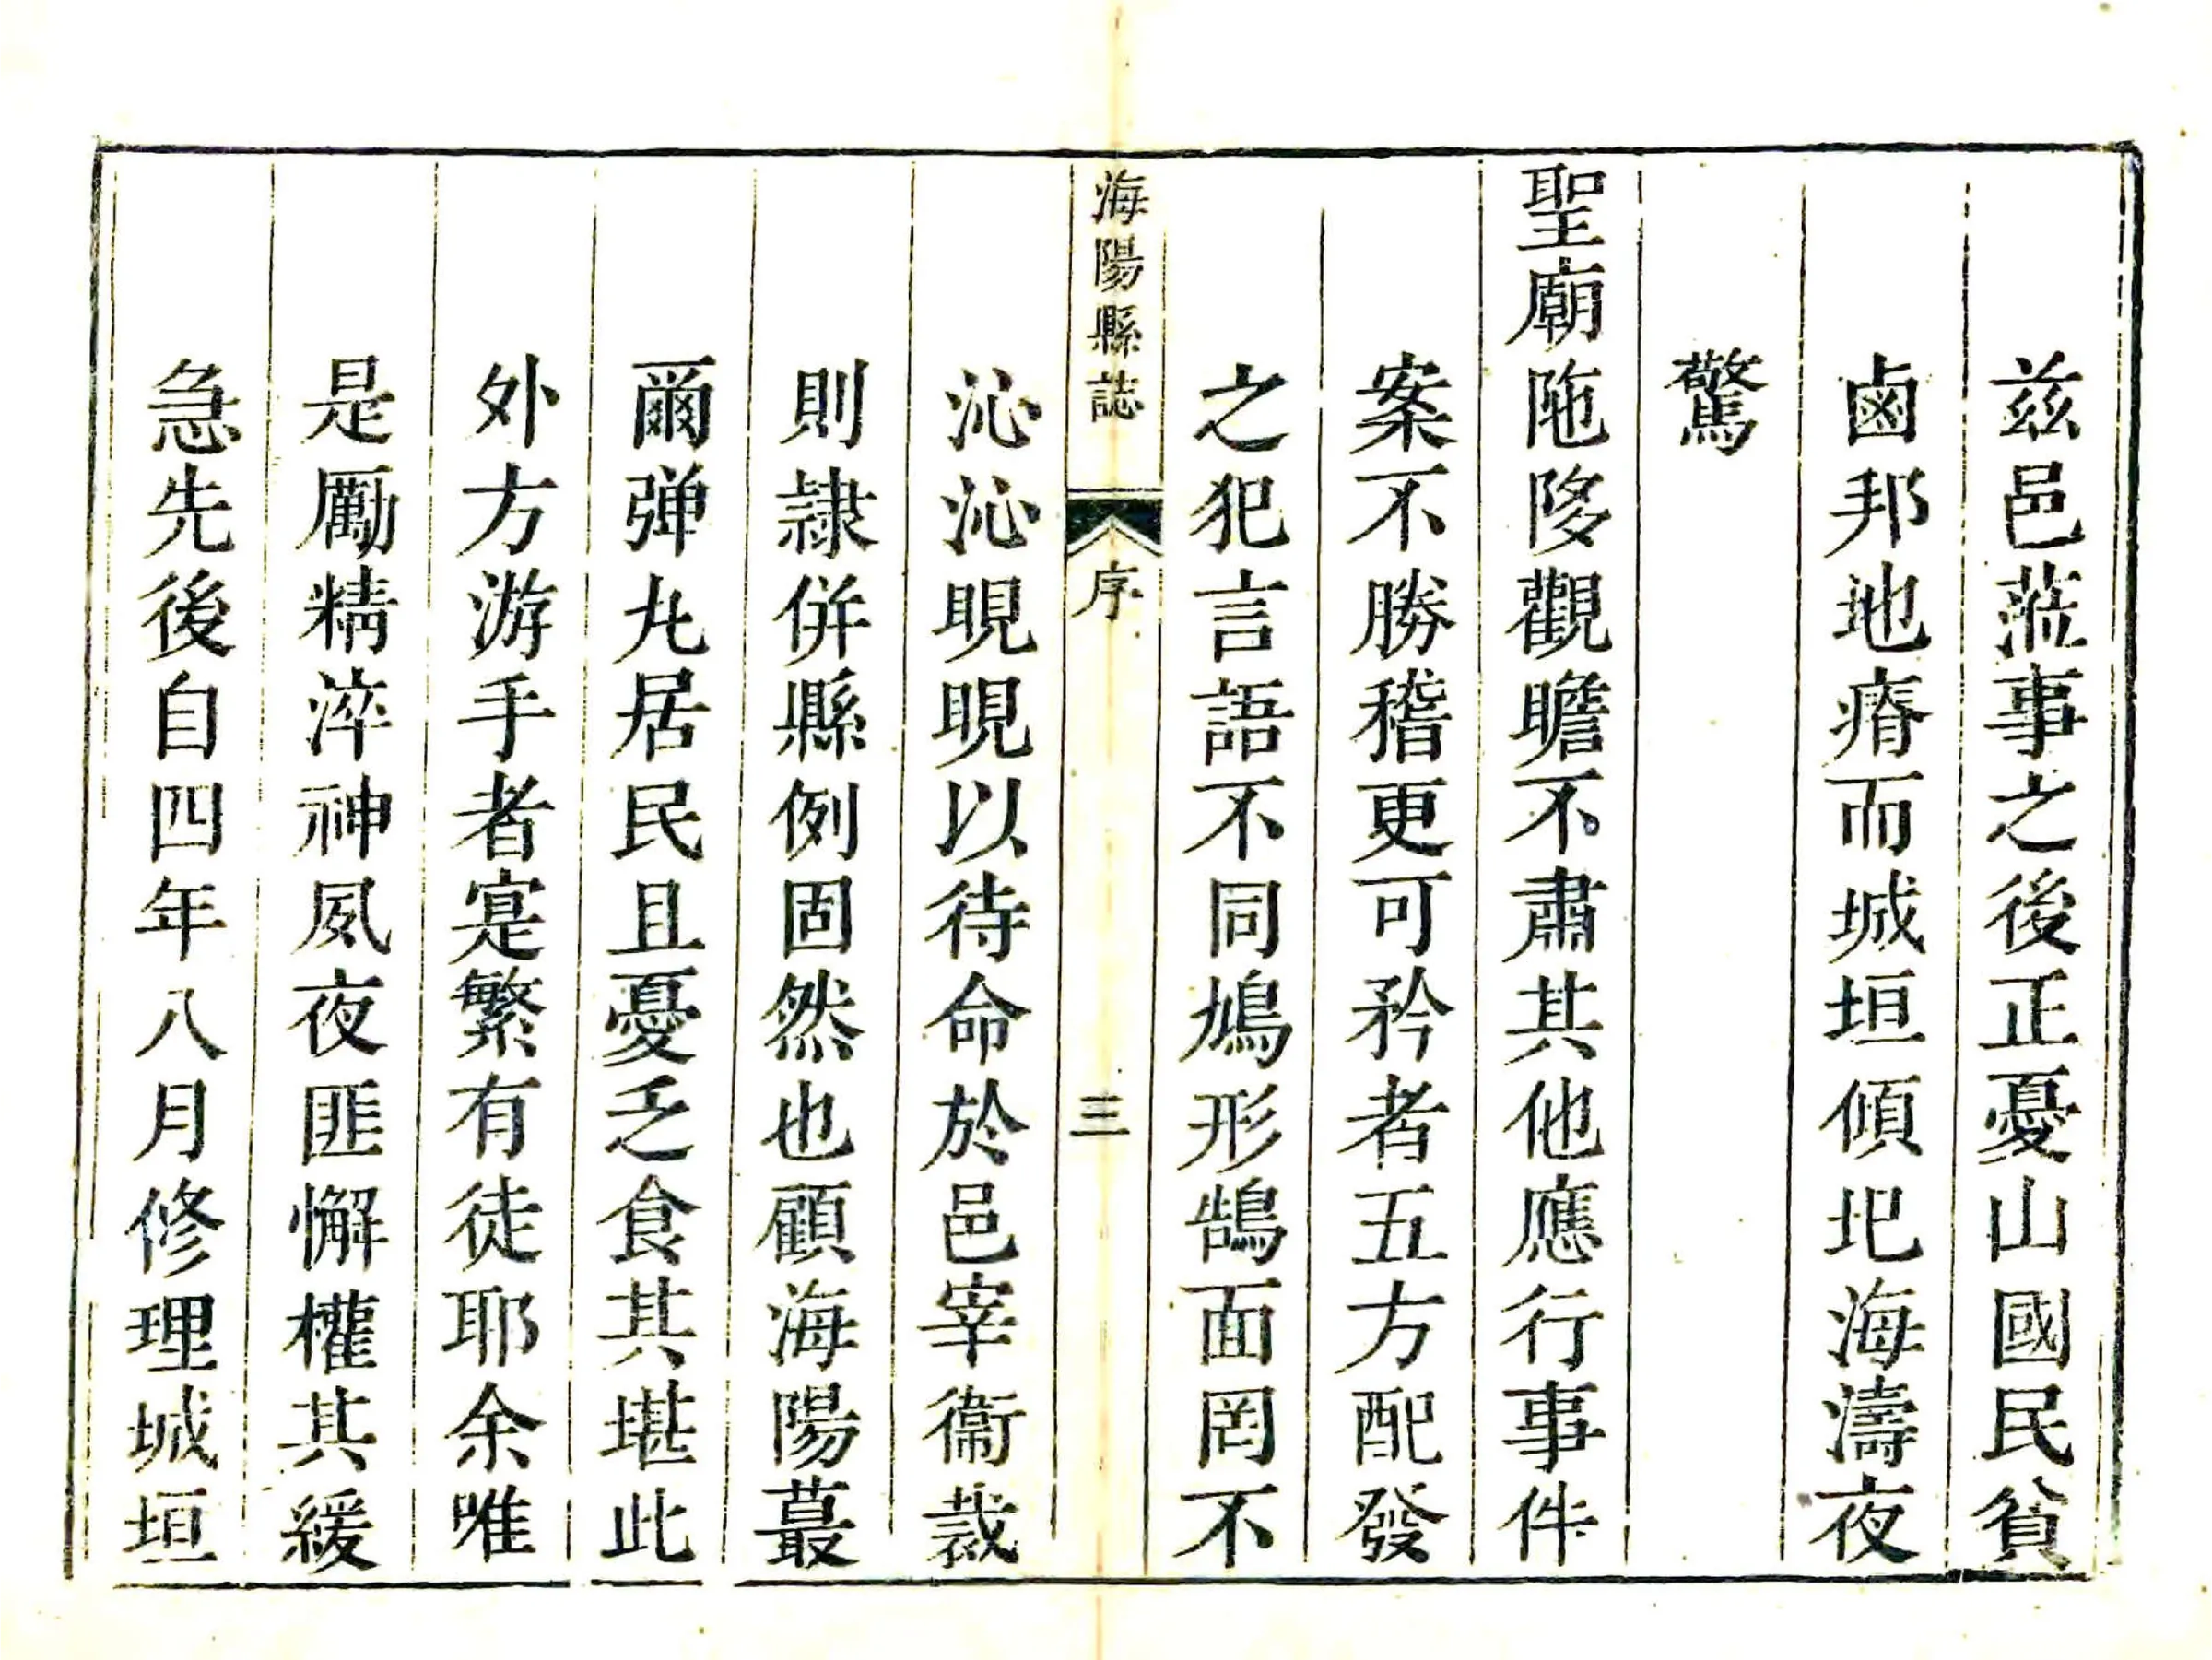 兹邑蒞事之後正憂山國民貧
鹵邦地瘠而城垣傾圯海濤夜
驚
聖廟陁陊觀瞻不肅其他應行事件
案不勝稽更可矜者五方配發
之犯言語不同鳩形鵠面罔不
海陽縣誌
序
三
沁沁睍睍以待命於邑宰衞裁
則隷併縣例固然也顧海陽蕞
爾弹丸居民且憂乏食其堪此
外方游手者寔繁有徒耶余唯
是厲精淬神夙夜匪懈權其緩
急先後自四年八月修理城垣